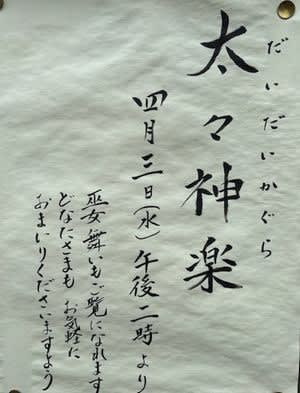 だいだいかぐら
太々神楽
四月三日(水)午後二時より
巫女舞いもご覧になれます
どなたさまも お気軽に
おまいりくださいますよう